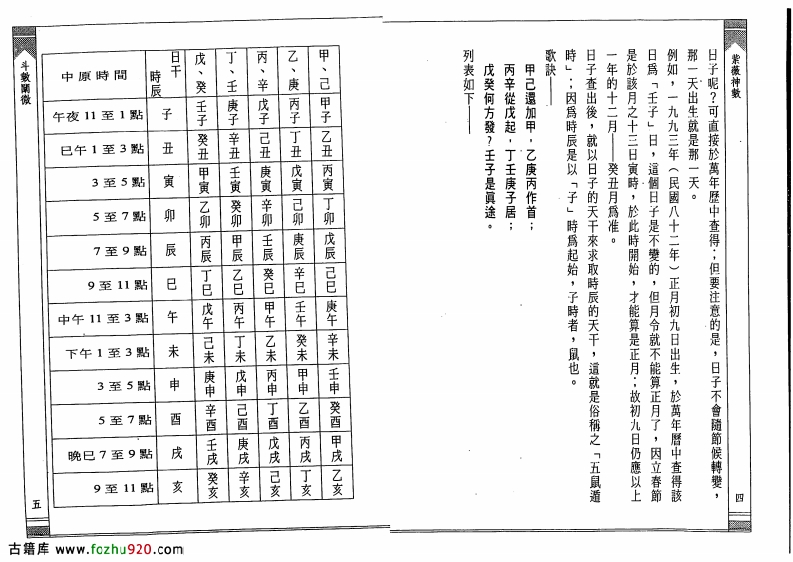 紫薇神數
日子呢？可直接於萬年歷中查得；但要注意的是，日子不會隨節候轉變，
那一天出生就是那一天。
例如，一九九三年（民國八十二年）正月初九日出生，於萬年曆中查得該
日爲「壬子」日，這個日子是不變的，但月令就不能算正月了，因立春節
是於該月之十三日寅時，於此時開始，才能算是正月；故初九日仍應以上
一年的十二月——癸丑月爲准。
日子查出後，就以日子的天干來求取時辰的天干，這就是俗稱之「五鼠遁
時」；因爲時辰是以「子」時爲起始，子時者，鼠也。
歌訣——
甲己還加甲，乙庚丙作首；
丙辛從戊起，丁壬庚子居；
戊癸何方發？壬子是眞途。
列表如下——
四
甲、己 乙、庚 丙、辛 丁、壬 戊、癸 日干 時辰 中原時間
甲子 丙子 戊子 庚子 壬子 子 午夜11至1點
乙丑 丁丑 己丑 辛丑 癸丑 丑 巳午1至3點
丙寅 戊寅 庚寅 壬寅 甲寅 寅 3至5點
丁卯 己卯 辛卯 癸卯 乙卯 卯 5至7點
戊辰 庚辰 壬辰 甲辰 丙辰 辰 7至9點
己巳 辛巳 癸巳 乙巳 丁巳 巳 9至11點
庚午 壬午 甲午 丙午 戊午 午 中午11至3點
辛未 癸未 乙未 丁未 己未 未 下午1至3點
壬申 甲申 丙申 戊申 庚申 申 3至5點
癸酉 乙酉 丁酉 己酉 辛酉 酉 5至7點
甲戌 丙戌 戊戌 庚戌 壬戌 戌 晚巳7至9點
乙亥 丁亥 己亥 辛亥 癸亥 亥 9至11點
斗數闡微
五
古籍库 www.fozhu920.com